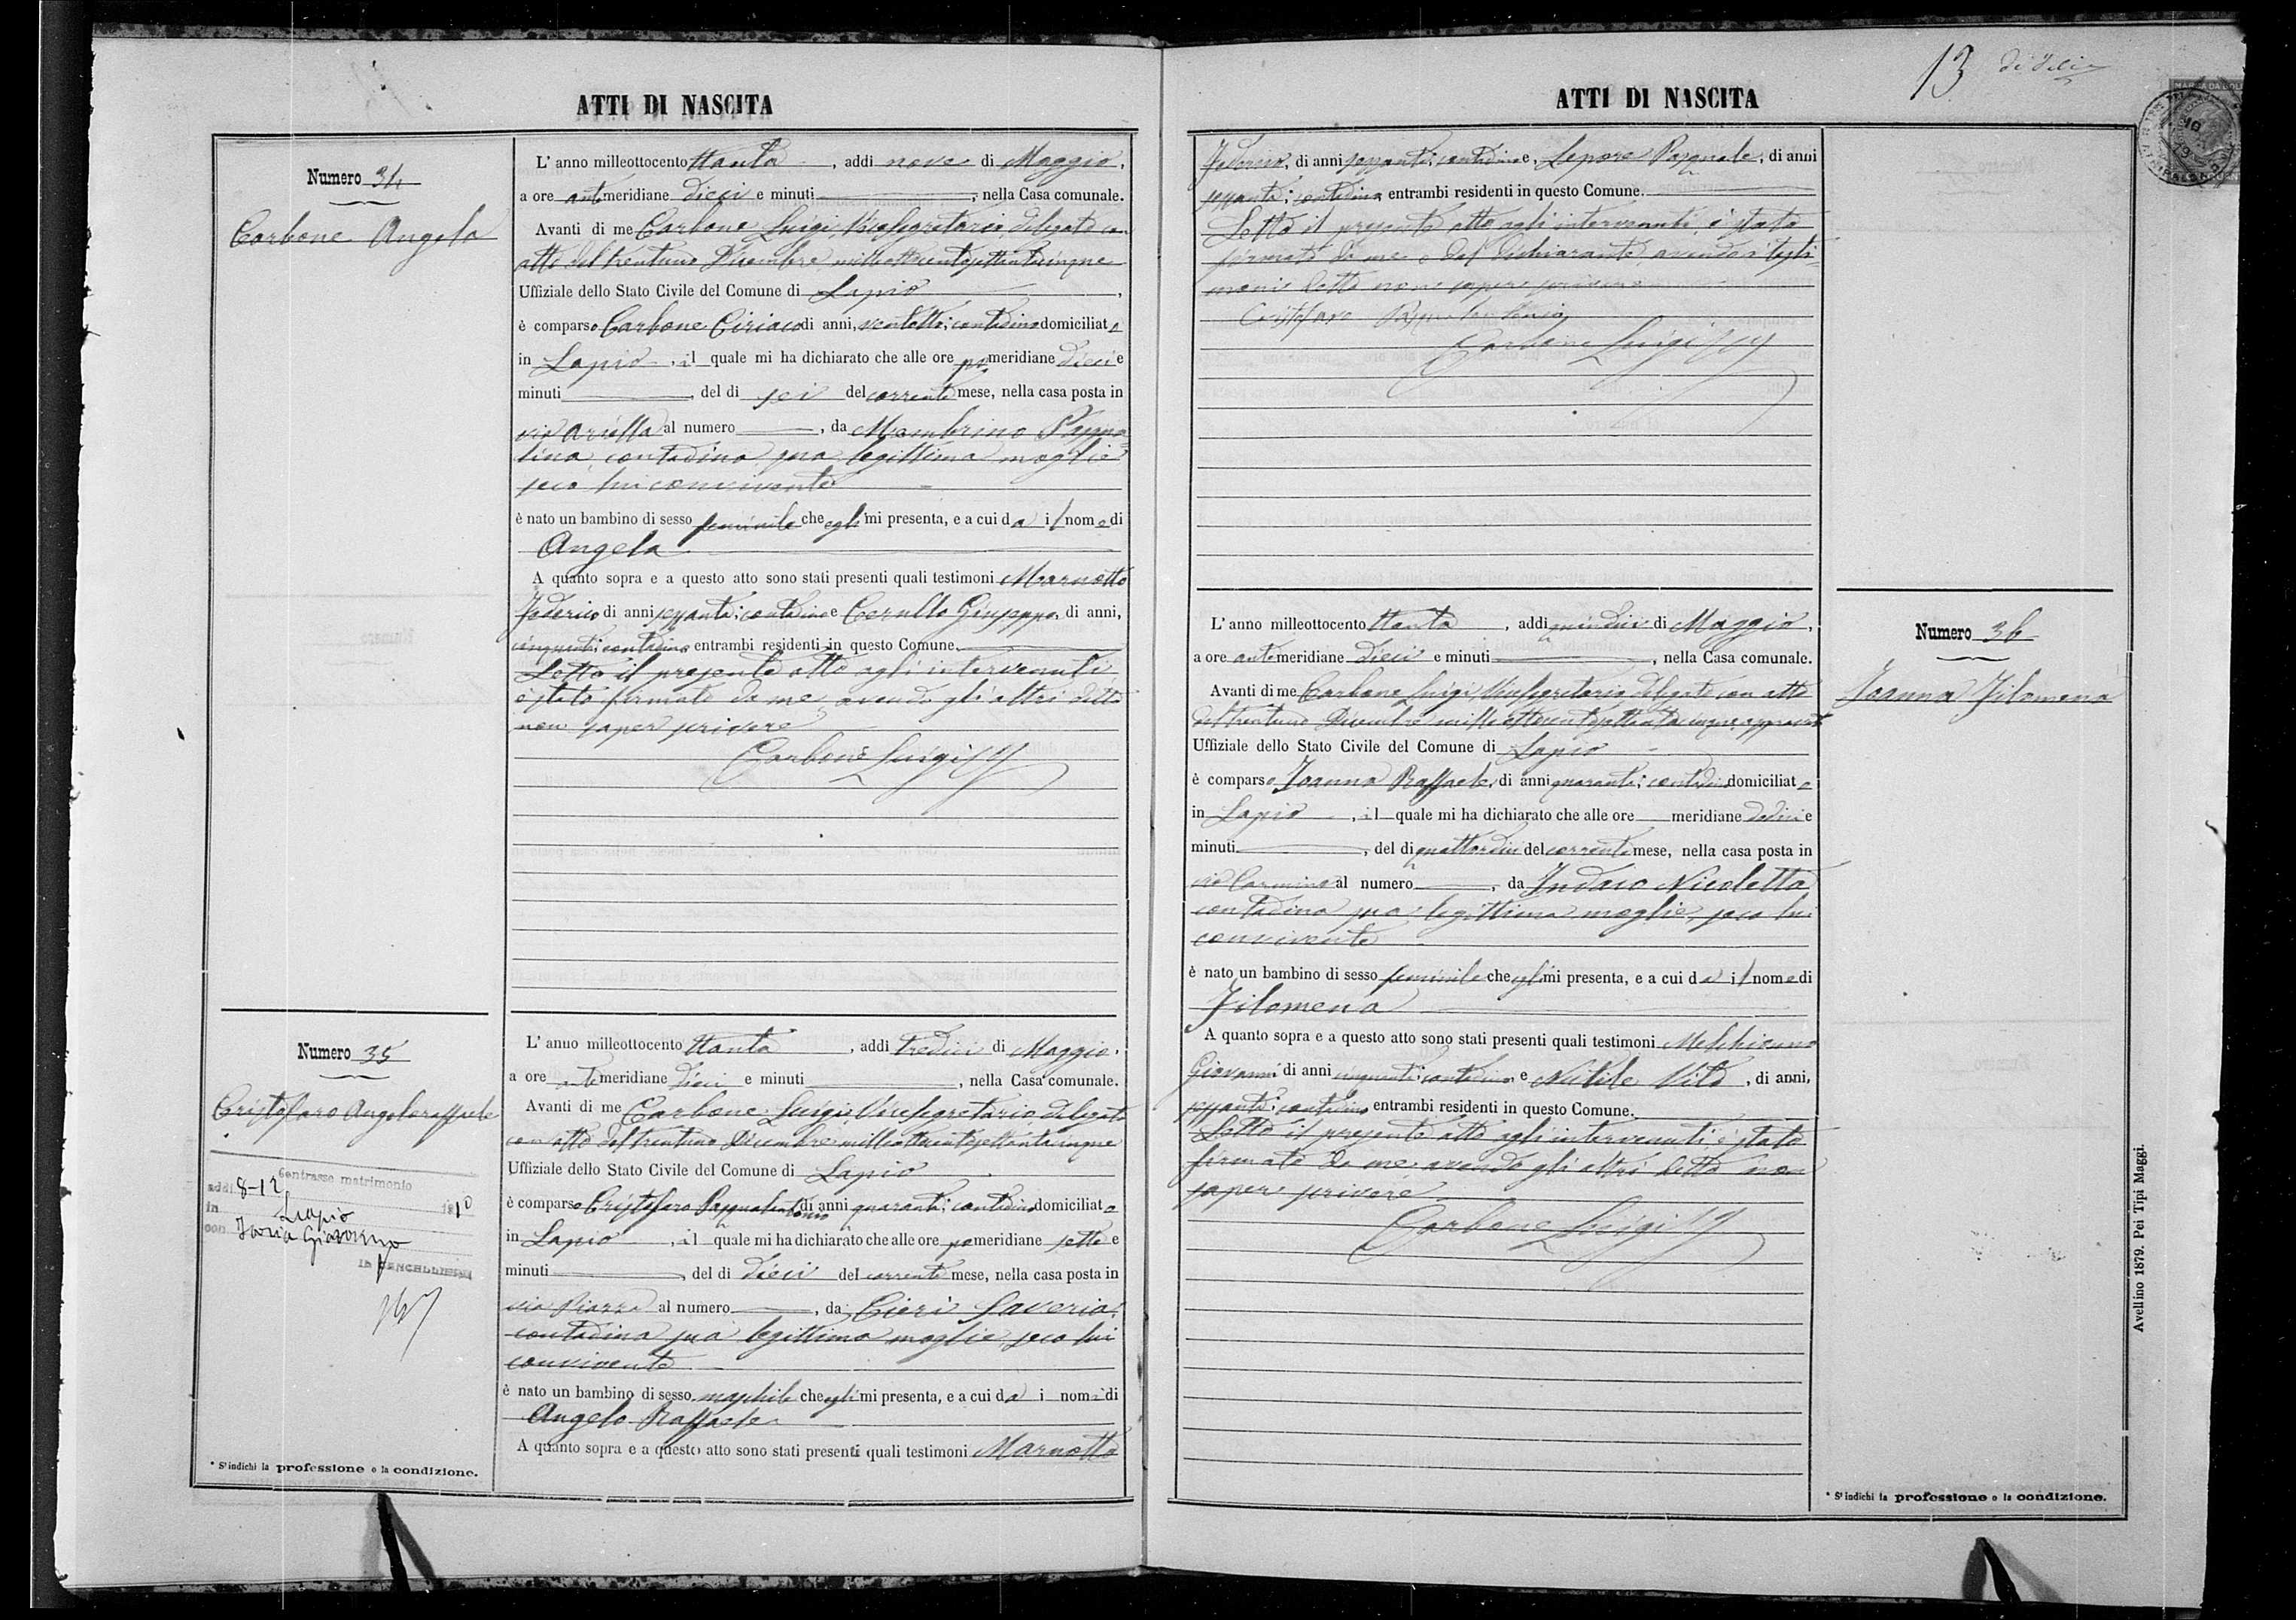 ATTI DI NASCITA
Numero 34
Carbone Angela
L' anno milleottocento ttanta, addì nove di Maggio,
a ore antimeridiane dieci e minuti, nella Casa comunale.
Avanti di me Carbone Luigi, Vicesegretario, delegato con
atto del trentuno Dicembre milleottocentosettantacinque
Uffiziale dello Stato Civile del Comune di Lapio,
è comparso Carbone Ciriaco di anni, ventotto; contadino domiciliato
in Lapio, il quale mi ha dichiarato che alle ore pomeridiane dieci e
minuti, del dì sei del corrente mese, nella casa posta in
via Ariella al numero, da Mambrino Pasqua=
lina, contadina sua legittima moglie
seco lui convivente
è nato un bambino di sesso feminile che egli mi presenta, e a cui da il nome di
Angela
A quanto sopra e a questo atto sono stati presenti quali testimoni Marnotto
Federico di anni sessanta; contadino e Cerullo Giuseppe, di anni,
cinquanta; contadino entrambi residenti in questo Comune.
Letto il presente atto agli intervenuti
è stato firmato da me, avendo gli altri detto
non saper scrivere
Carbone Luigi
Numero 35
Cristofaro Angeloraffaele
Contrasse matrimonio
addì 8-12 1910
in Lapio
con Iorio Giacomina
IL CANCELLIERE
L' anno milleottocento ttanta, addì tredici di Maggio,
a ore antimeridiane dieci e minuti, nella Casa comunale.
Avanti di me Carbone Luigi, Vicesegretario, delegato
con atto del trentuno Dicembre milleottocentosettantacinque
Uffiziale dello Stato Civile del Comune di Lapio
è comparso Cristofaro Pasqualantonio di anni quaranta; contadino domiciliato
in Lapio, il quale mi ha dichiarato che alle ore pomeridiane sette e
minuti, del dì dieci del corrente mese, nella casa posta in
via Piazza al numero, da Cieri Saveria,
contadina sua legittima moglie seco lui
convivente
è nato un bambino di sesso maschile che egli mi presenta, e a cui da i nomi di
Angelo Raffaele
A quanto sopra e a questo atto sono stati presenti quali testimoni Marnotto
* S' indichi la professione o la condizione.
ATTI DI NASCITA
13
Federico, di anni sessanta; contadino e, Lepore Pasquale, di anni
sessanta; contadino entrambi residenti in questo Comune.
Letto il presente atto agli intervenuti, è stato
firmato da me e dal dichiarante, avendo i testi=
moni detto non sapere scrivere
Cristofaro Pasqualantonio
Carbone Luigi
Numero 36
Ioanna Filomena
L' anno milleottocento ttanta, addì quindici di Maggio,
a ore antimeridiane dieci e minuti, nella Casa comunale.
Avanti di me Carbone Luigi, Vicesegretario delegato con atto
del trentuno Dicembre milleottocentosettantacinque approvato
Uffiziale dello Stato Civile del Comune di Lapio
è comparso Ioanna Raffaele, di anni quaranta; contadino domiciliato
in Lapio, il quale mi ha dichiarato che alle ore meridiane dodici e
minuti, del dì quattordici del corrente mese, nella casa posta in
via Carmine al numero, da Indaco Nicoletta
contadina sua legittima moglie, seco lui
convivente
è nato un bambino di sesso feminile che egli mi presenta, e a cui da il nome di
Filomena
A quanto sopra e a questo atto sono stati presenti quali testimoni Melchionno
Giovanni di anni cinquanta; contadino e Nutile Vito, di anni,
sessanta; contadino entrambi residenti in questo Comune.
Letto il presente atto agli intervenuti è stato
firmato da me avendo gli altri detto non
sapere scrivere
Carbone Luigi
* S' indichi la professione o la condizione.
Avellino 1879. Pei Tipi Maggi.